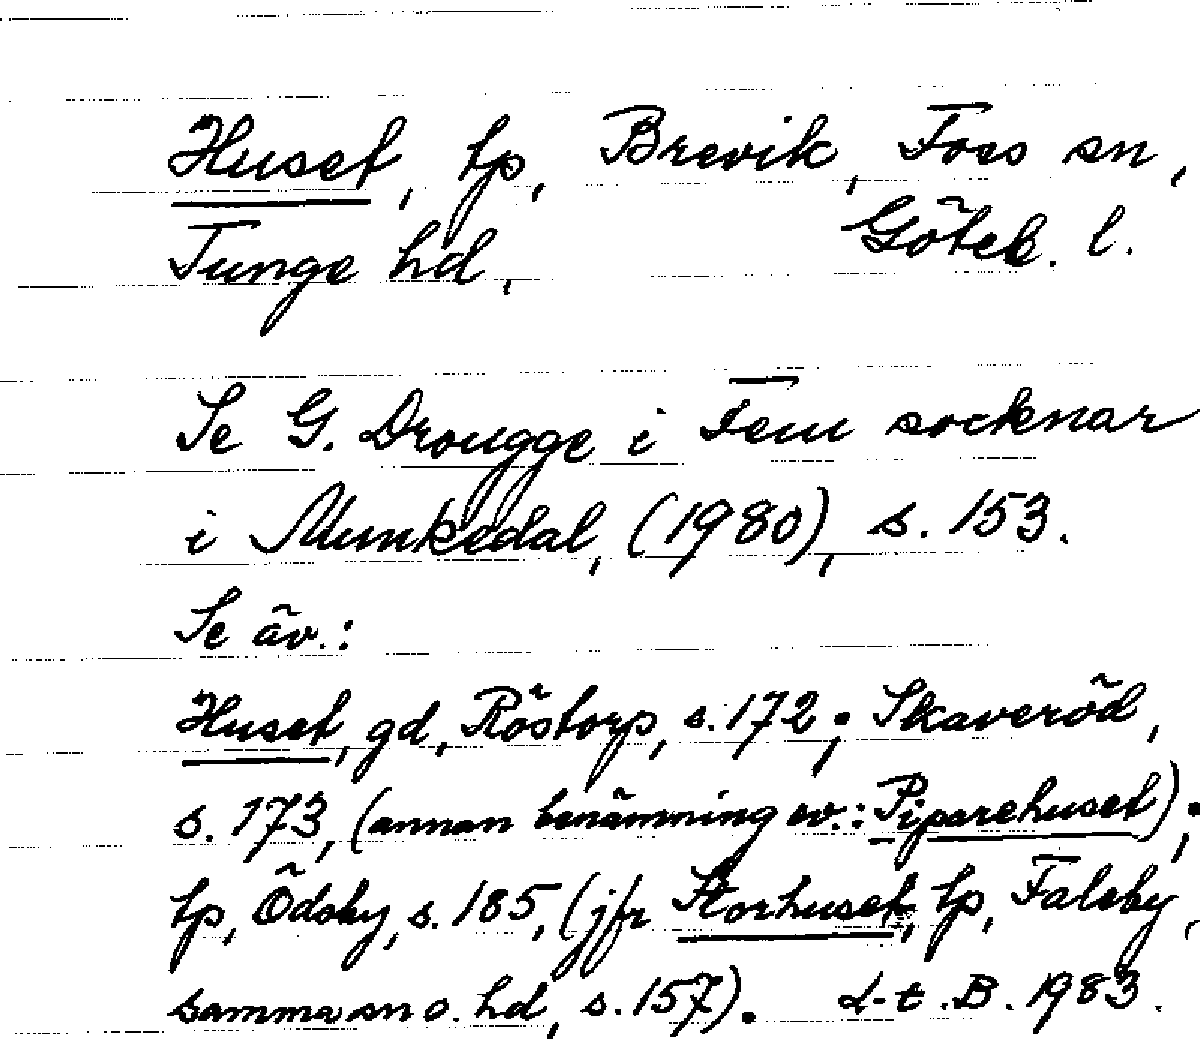 Huset, tp, Brevik, Foss sn,
Tunge hd. Göteb. l.
Se G. Drougge i Fem socknar
i Munkedal, (1980), s. 153.
Se äv.:
Huset, gd, Röstorp, s. 172; Skaveröd,
s. 173, (annan benämning ev.: Piparehuset);
tp, Ödsby, s. 185, (jfr Storhuset, tp, Faleby,
samma sn o. hd, s. 157). d-t. B. 1983.